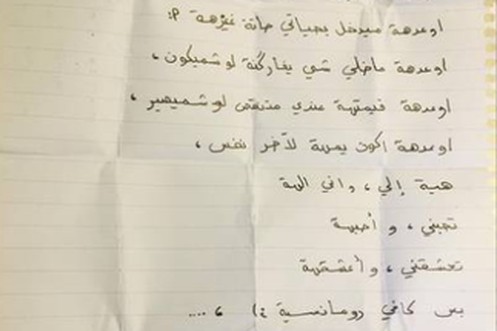 اوعدهة ميدخل بحياتي حاتة غيرهة :P
اوعدهة ماخلي شي يفاركنة لو شميكون ،
اوعدهة قيمتهة عندي متنقص لو شميهير ،
اوعدهة اكون يمهة لآخر نفس ،
هية إلي ، واني الهة
تحبني ، و أحبهة
تعشقني ، و أعشقهة
بس كافي رومانسية :) ، ....